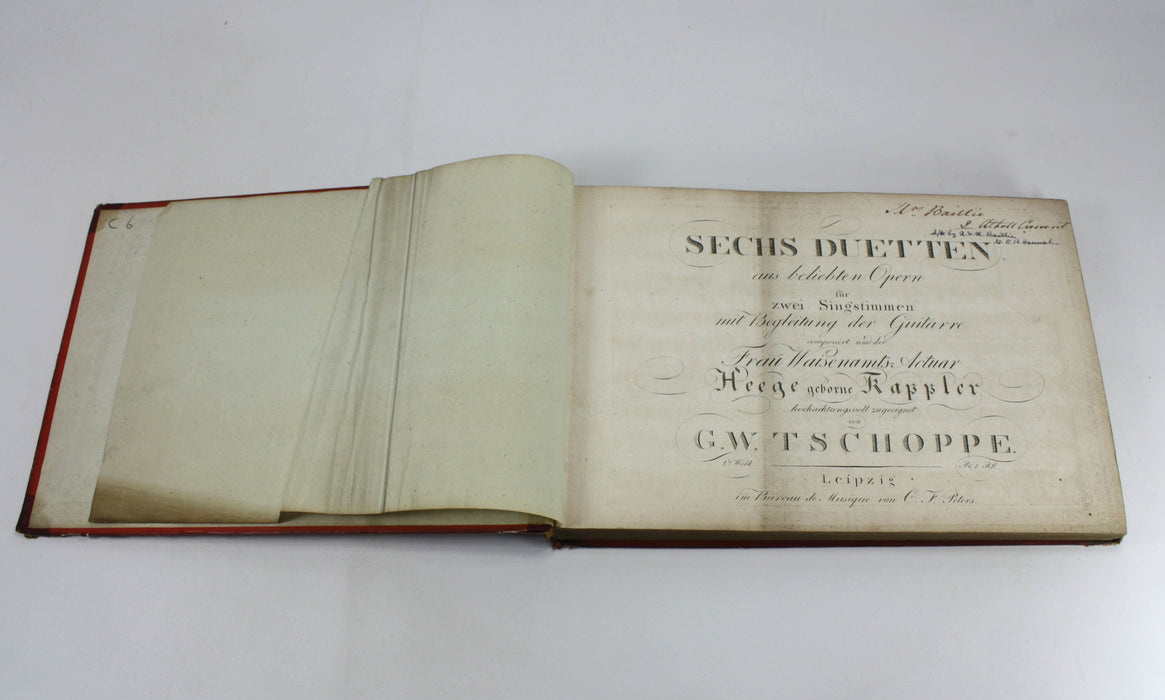 C 6
Mrs Baillie
2 Atholl Crescent
by
SECHS DUETTEN
aus beliebten Opern
für
zwei Singstimmen
mit Begleitung der Guitarre
componirt und der
Frau Waisenamts-Actuar
Heege geborne Kappler
hochachtungsvoll zugeeignet
von
G.W. TSCHOPPE.
1s Werk
Pr. 1 Rtl.
Leipzig
im Bureau de Musique von C. F. Peters.